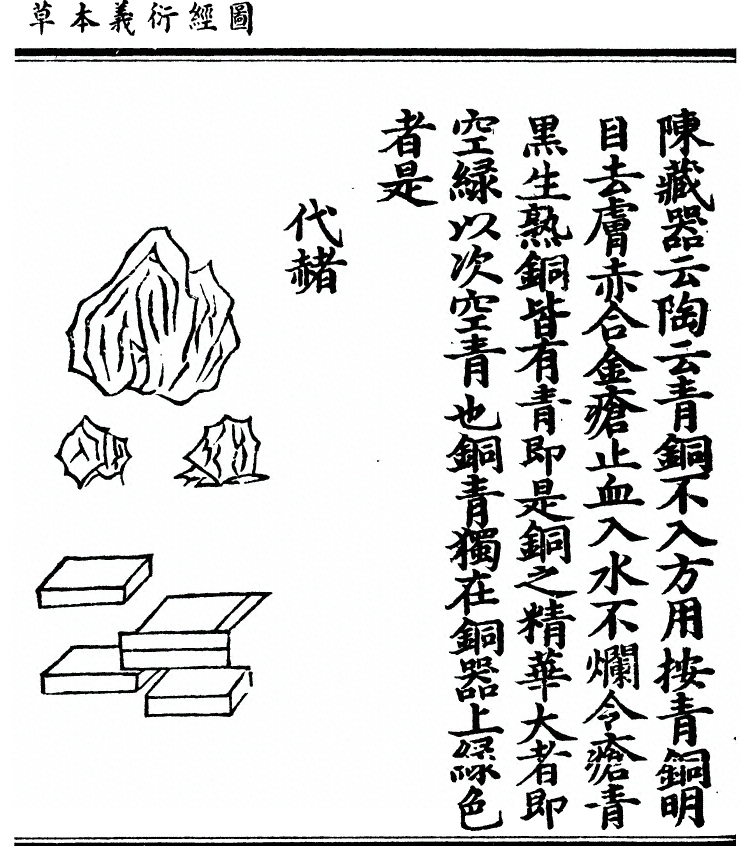 圖經衍義本草
陳藏器云陶云青銅不入方用按青銅明
目去膚赤合金瘡止血入水不爛令瘡青
黒生熟銅皆有青即是銅之精華大者即
空緑以次空青也銅青獨在銅器上綠色
者是
代赭